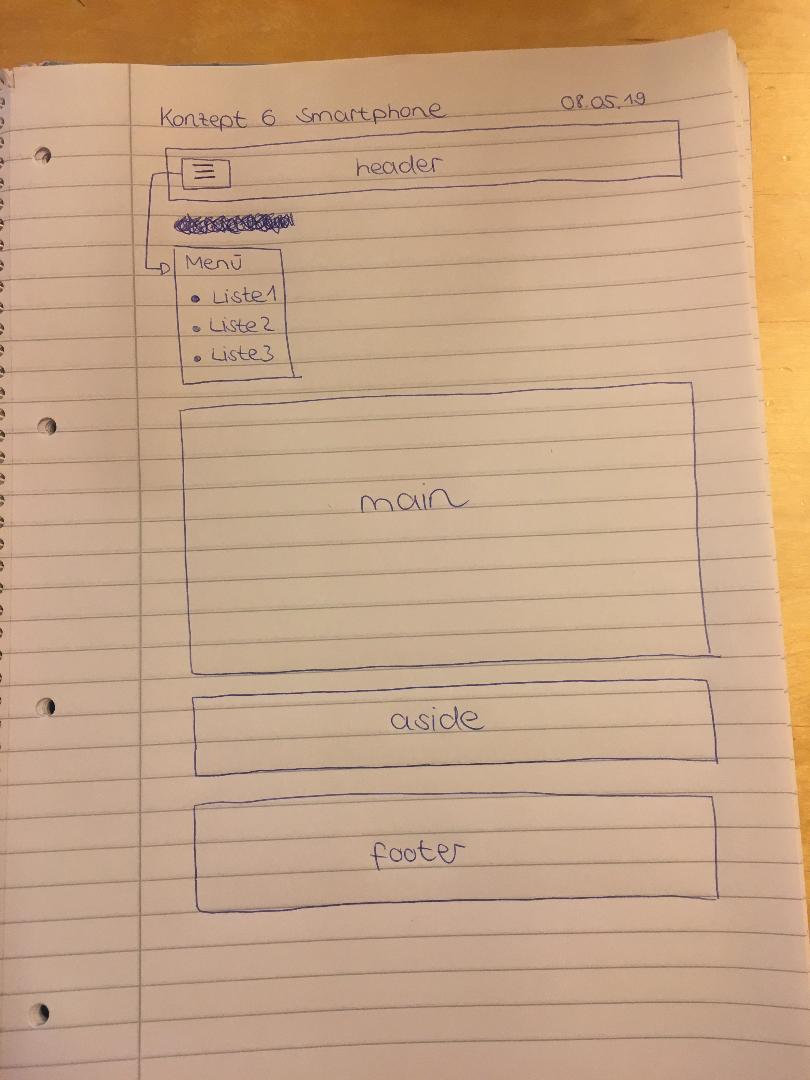 Konzept 6 Smartphone 08.05.19
header
Menü
• Liste1
• Liste2
• Liste3
main
aside
footer